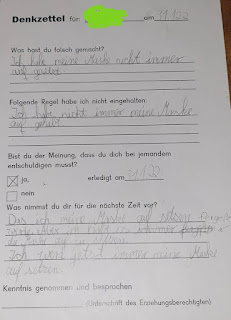 Denkzettel für am 31.1.22
Was hast du falsch gemacht?
Ich habe meine Maske nicht immer
auf gesetzt.
Folgende Regel habe ich nicht eingehalten:
Ich habe nicht immer meine Maske
auf gehabt
Bist du der Meinung, dass du dich bei jemandem
entschuldigen musst?
ja, erledigt am 31.1.22
nein
Was nimmst du dir für die nächste Zeit vor?
Das ich meine Maske auf setzen
werde. Aber ich habe es immer
die Maske auf zu setzen.
Ich werd jetzt immer meine Maske
auf setzen.
Kenntnis genommen und besprochen
(Unterschrift des Erziehungsberechtigten)